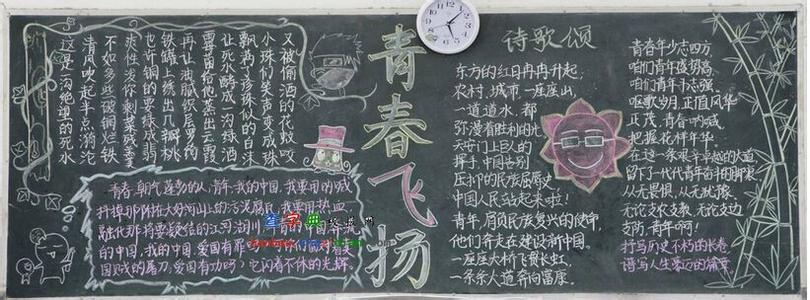 这是一沟绝望的死水
清风吹起半点漪沦
不如多些破铜烂铁
爽性泼你剩菜残羹
也许铜的要绿成翡
铁罐上绣出几瓣桃
再让油腻织层罗绮
霉菌给他蒸出云霞
让死水酵成一沟绿酒
飘满了珍珠似的白沫
小珠们笑声变成珠
又被偷酒的花蚊咬
青春,朝气蓬勃的人,我的中国,我要用
掉那大好河山上的污泥
融化那将要凝结的江河湖川
的中国,我的中国,爱国有罪
国贼的屠刀,爱国有功
青春飞扬
诗歌颂
东方的红日冉冉升起,
农村,城市一座座山
一道道水,都
弥漫着胜利的光
天安门上巨人的
挥手,中国告别
压抑的民族屈辱史
中国人民站起来啦!
青年,肩负民族复兴的使命,
他们奔走在建设新中国.
一座座大桥飞贯长虹,
一条条大道奔向富庶.
青春年少志四方,
咱们青年盛势高,
咱们青年斗志强
讴歌岁月,正值风华
正茂,青春呐喊,
把握花样年华
在这一条艰辛卓越的大道
留下一代代青年奋斗的脚印
从无畏惧,从无犹豫
无论支农支教,无论支边
支防,青年啊!
打写历史不朽的长卷
谱写人生
查字典